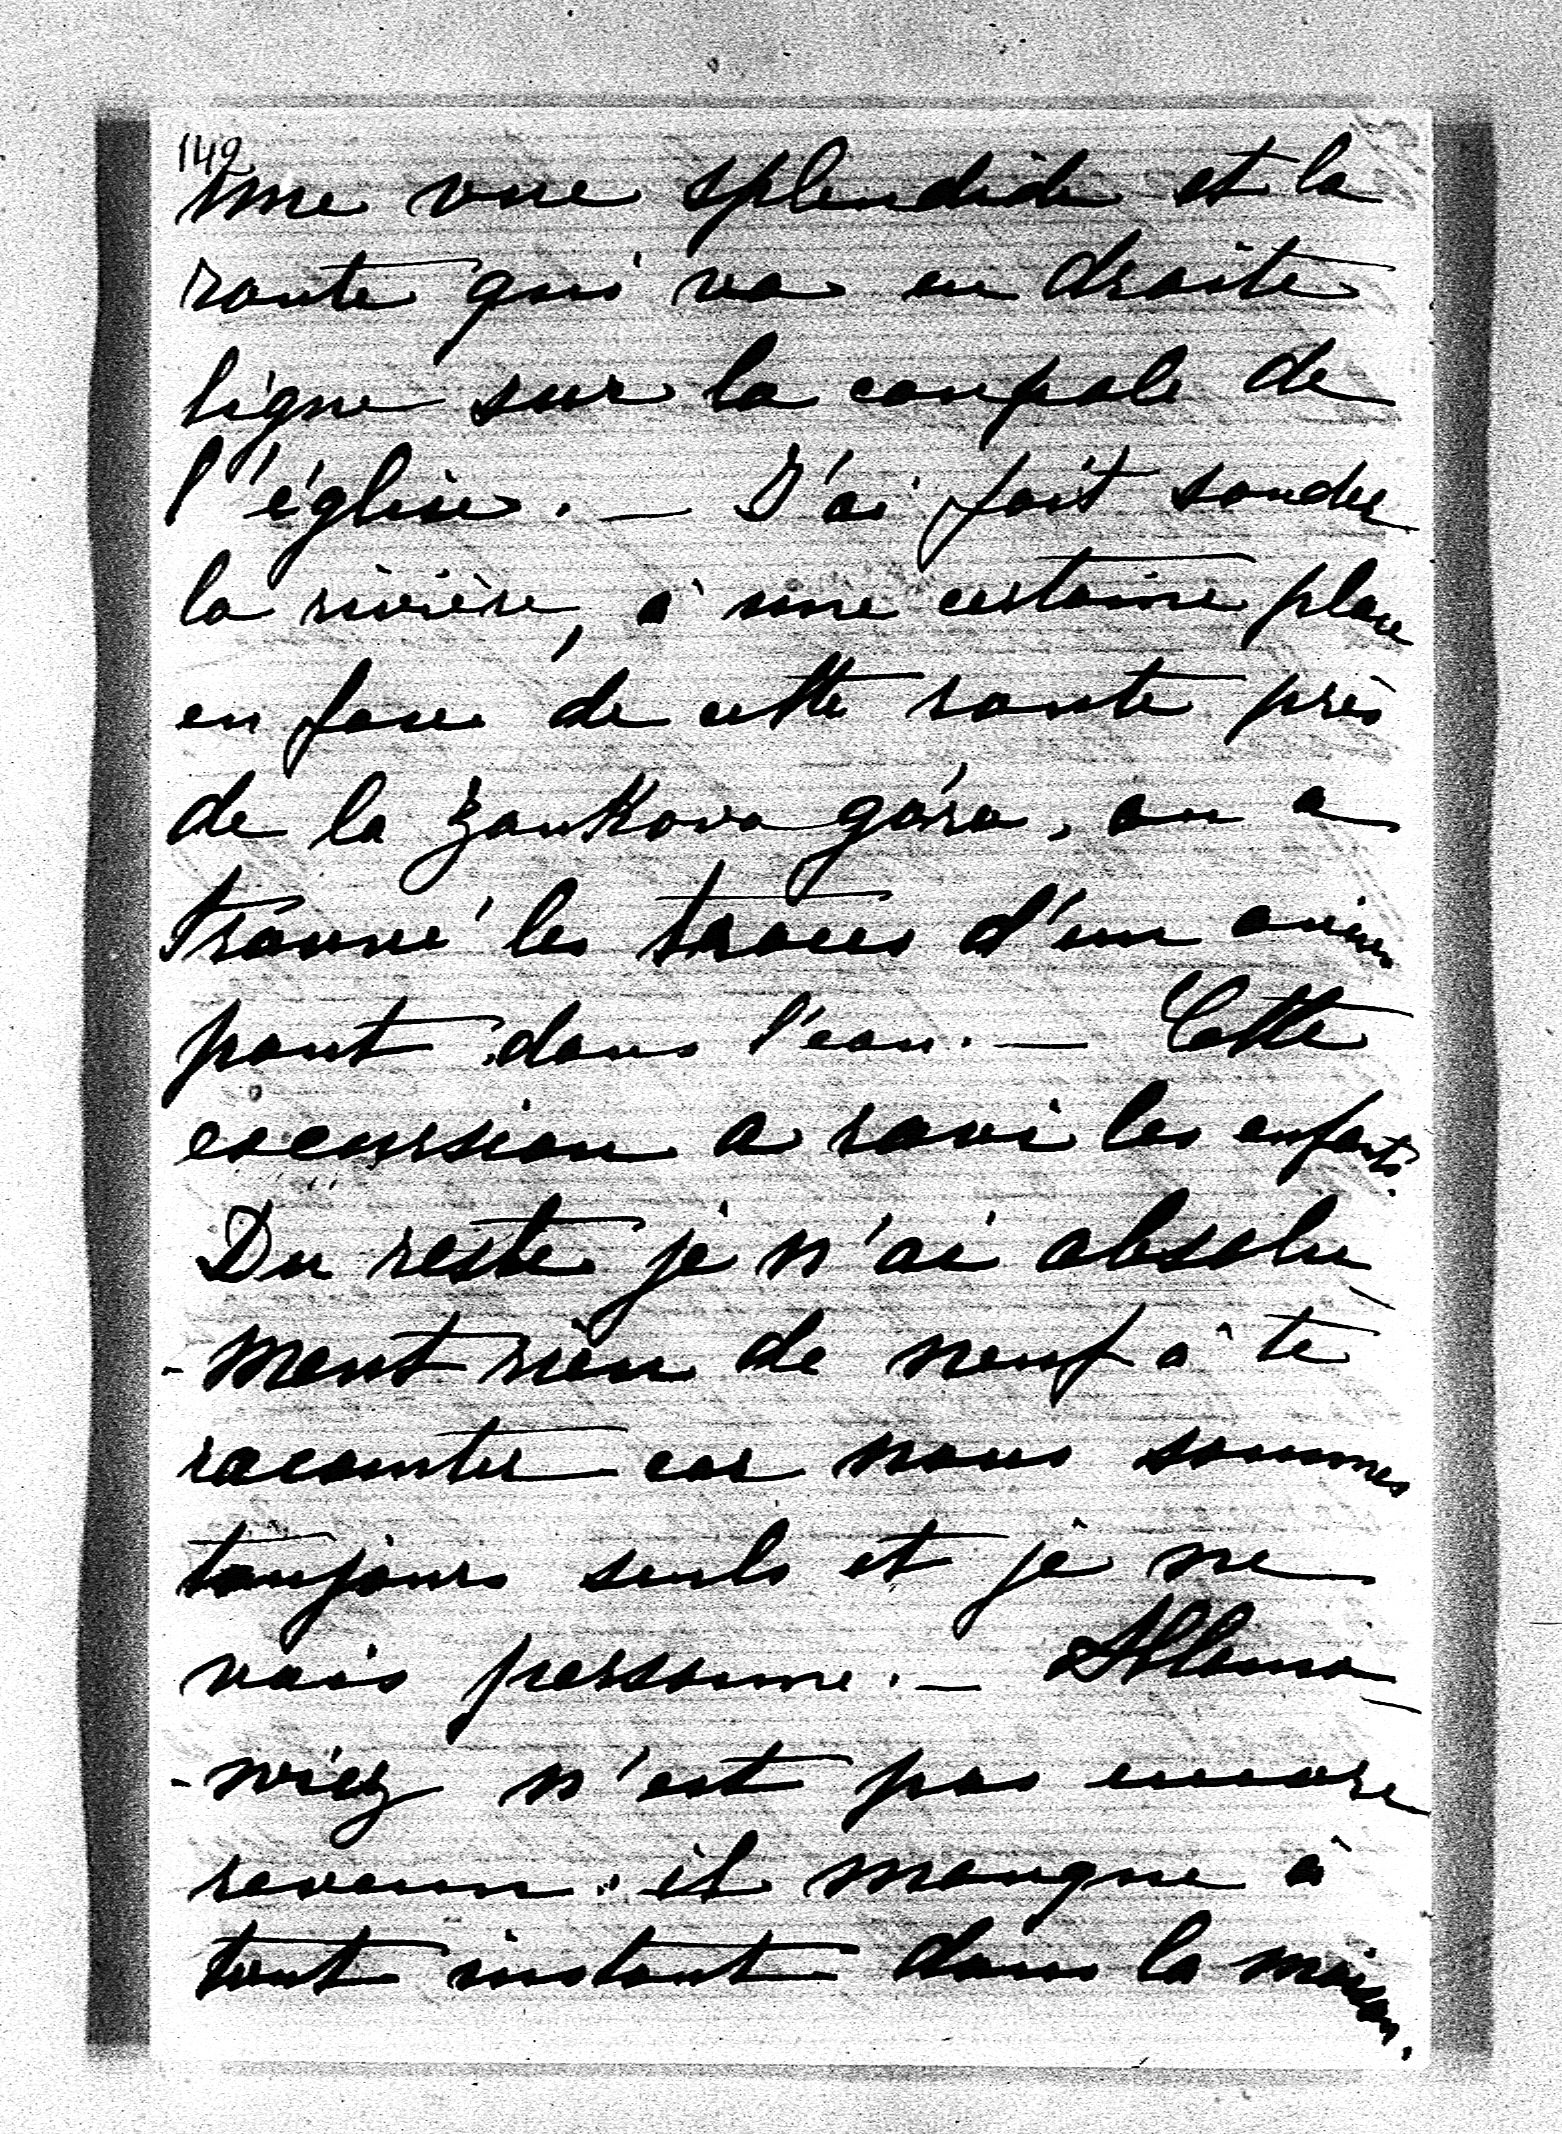 149
une vue splendide et la
route qui va en droite
ligne sur la coupole de
l'église. — J'ai fait sonder
la rivière, à une certaine place
en face de cette route près
de la Zamkova góra, on a
trouvé les traces d'un ancien
pont dans l'eau. — Cette
excursion a ravi les enfants.
Du reste je n'ai absolu
-ment rien de neuf à te
raconter car nous sommes
toujours seuls et je ne
vois personne. —
-wicz n'est pas encore
revenu. il manque à
tout instant dans la maison.